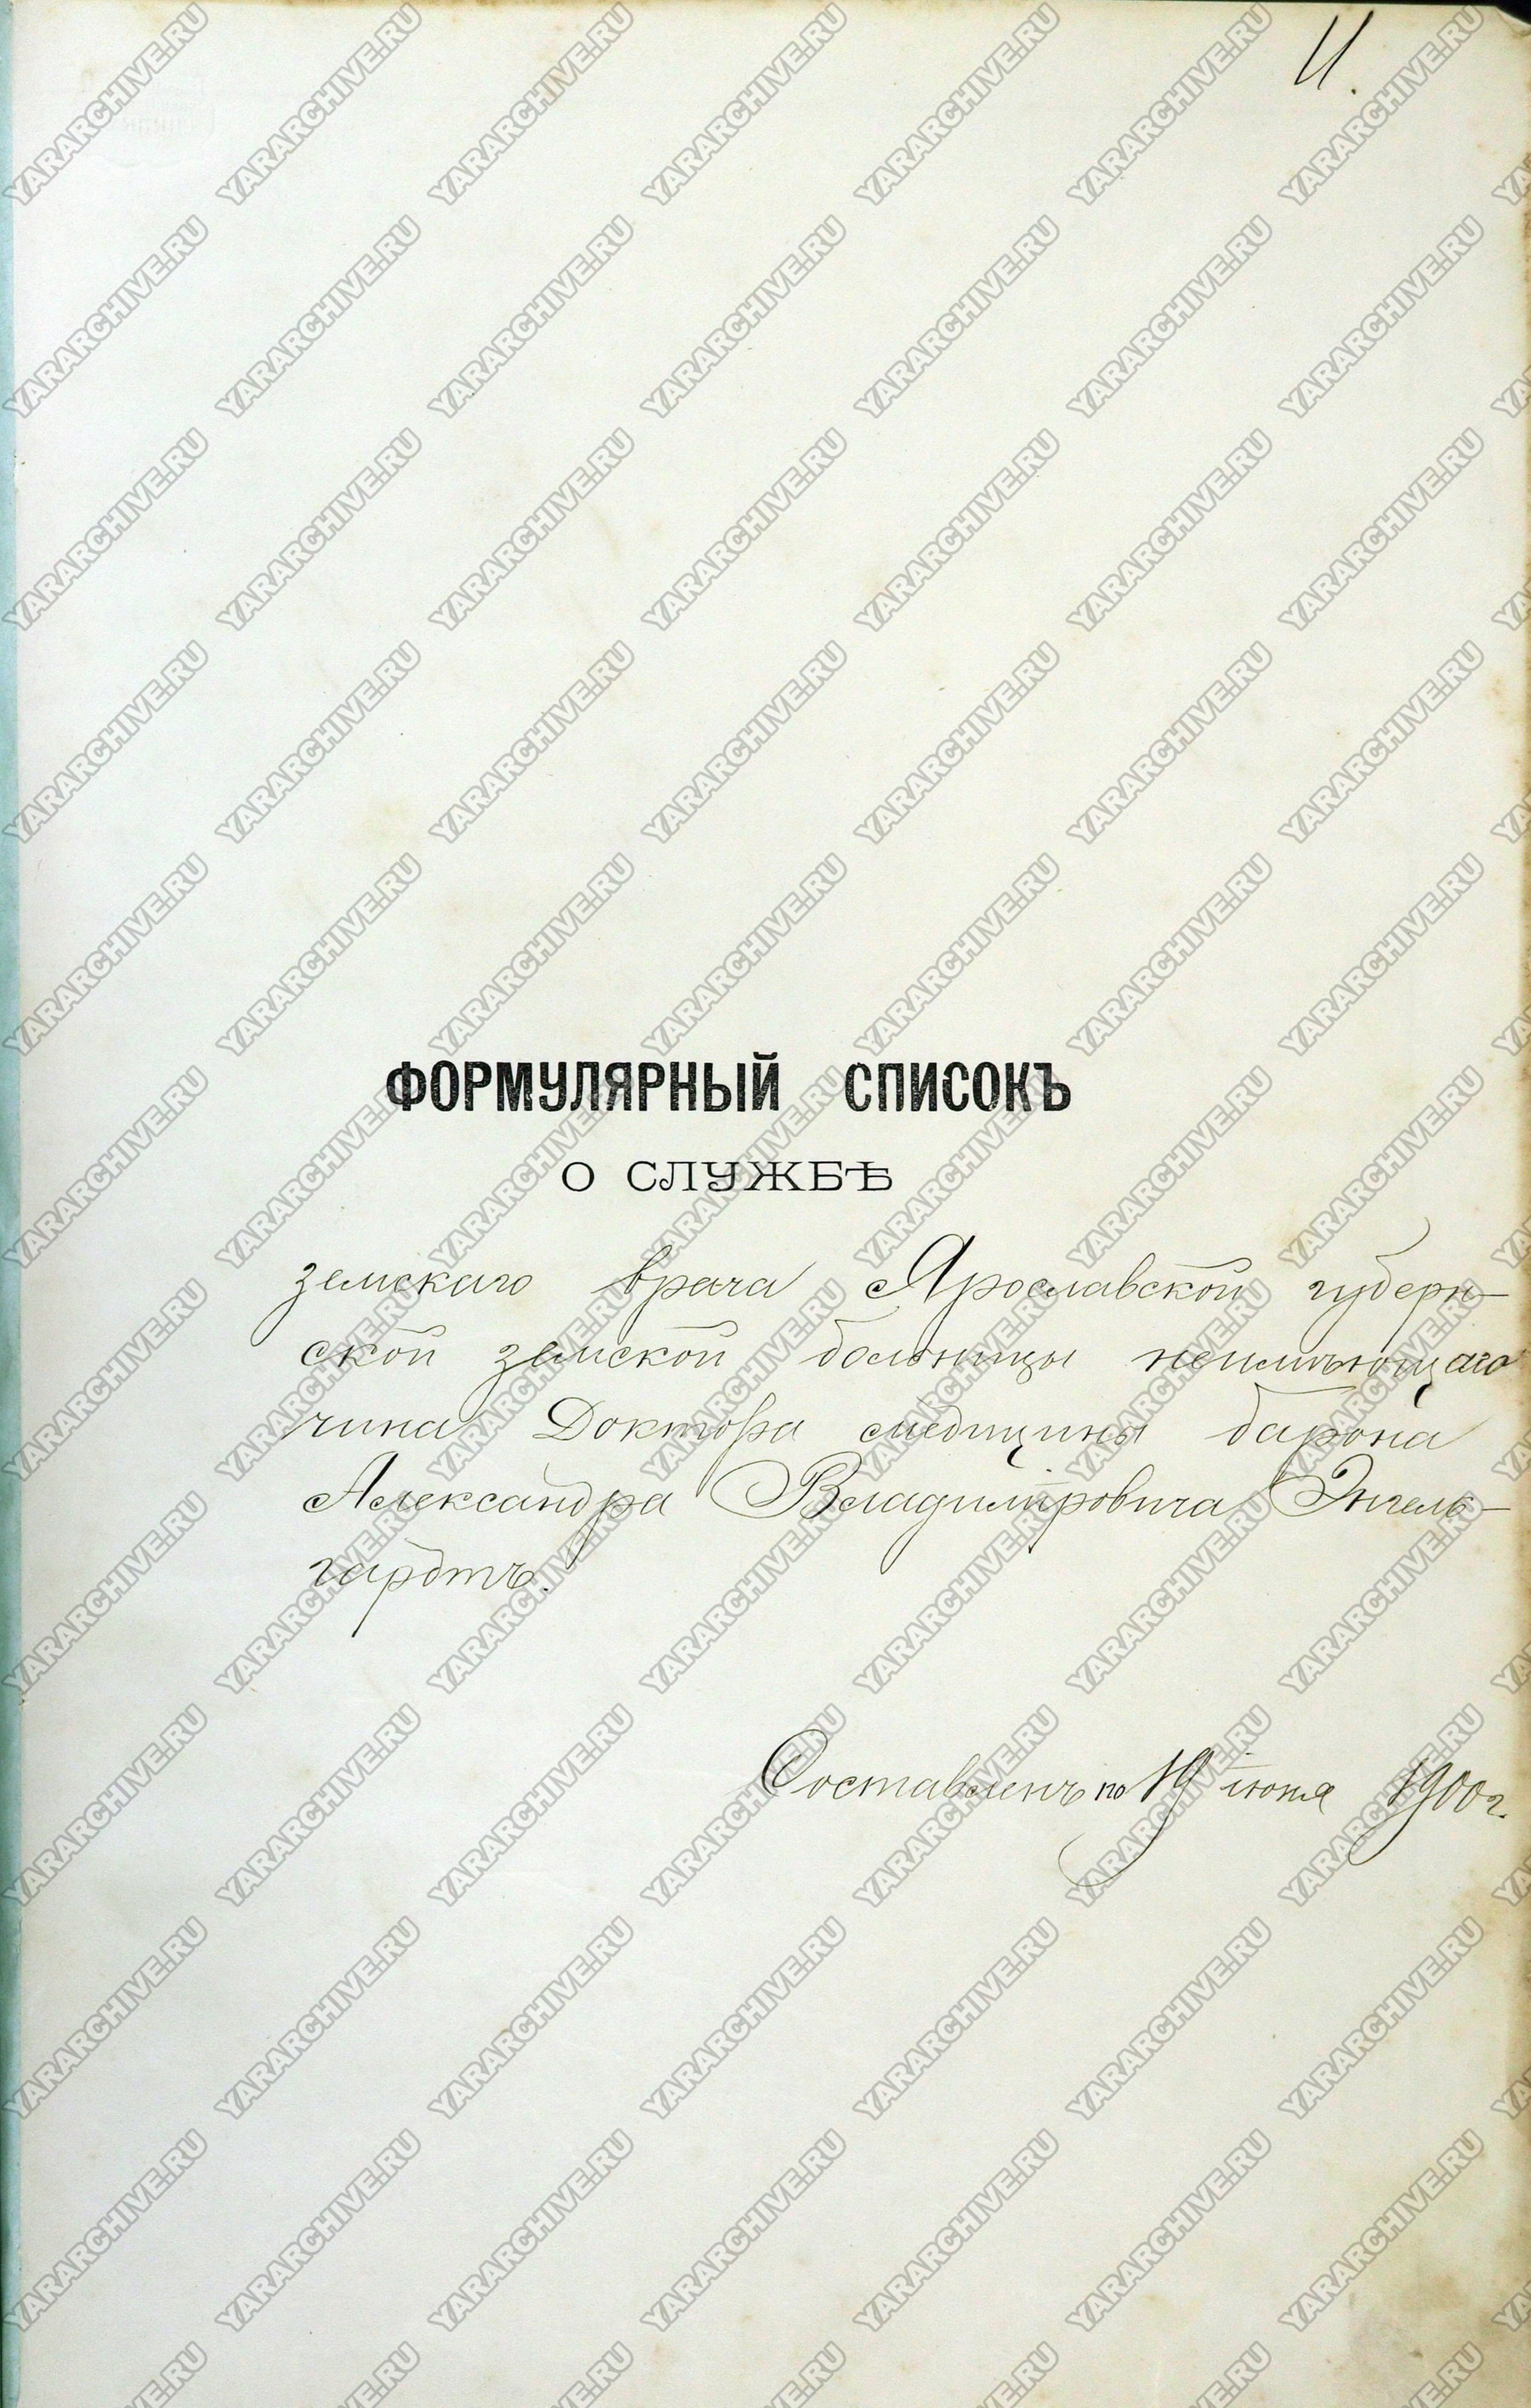 11.
ФОРМУЛЯРНЫЙ СПИСОКЪ
О СЛУЖБѢ
земскаго врача Ярославской губерн-
ской земской больницы неимѣющаго
чина Доктора медицины барона
Александра Владиміровича Энгель-
гардтъ.
Составленъ по 19 іюня 1900 г.
YARARCHIVE.RU